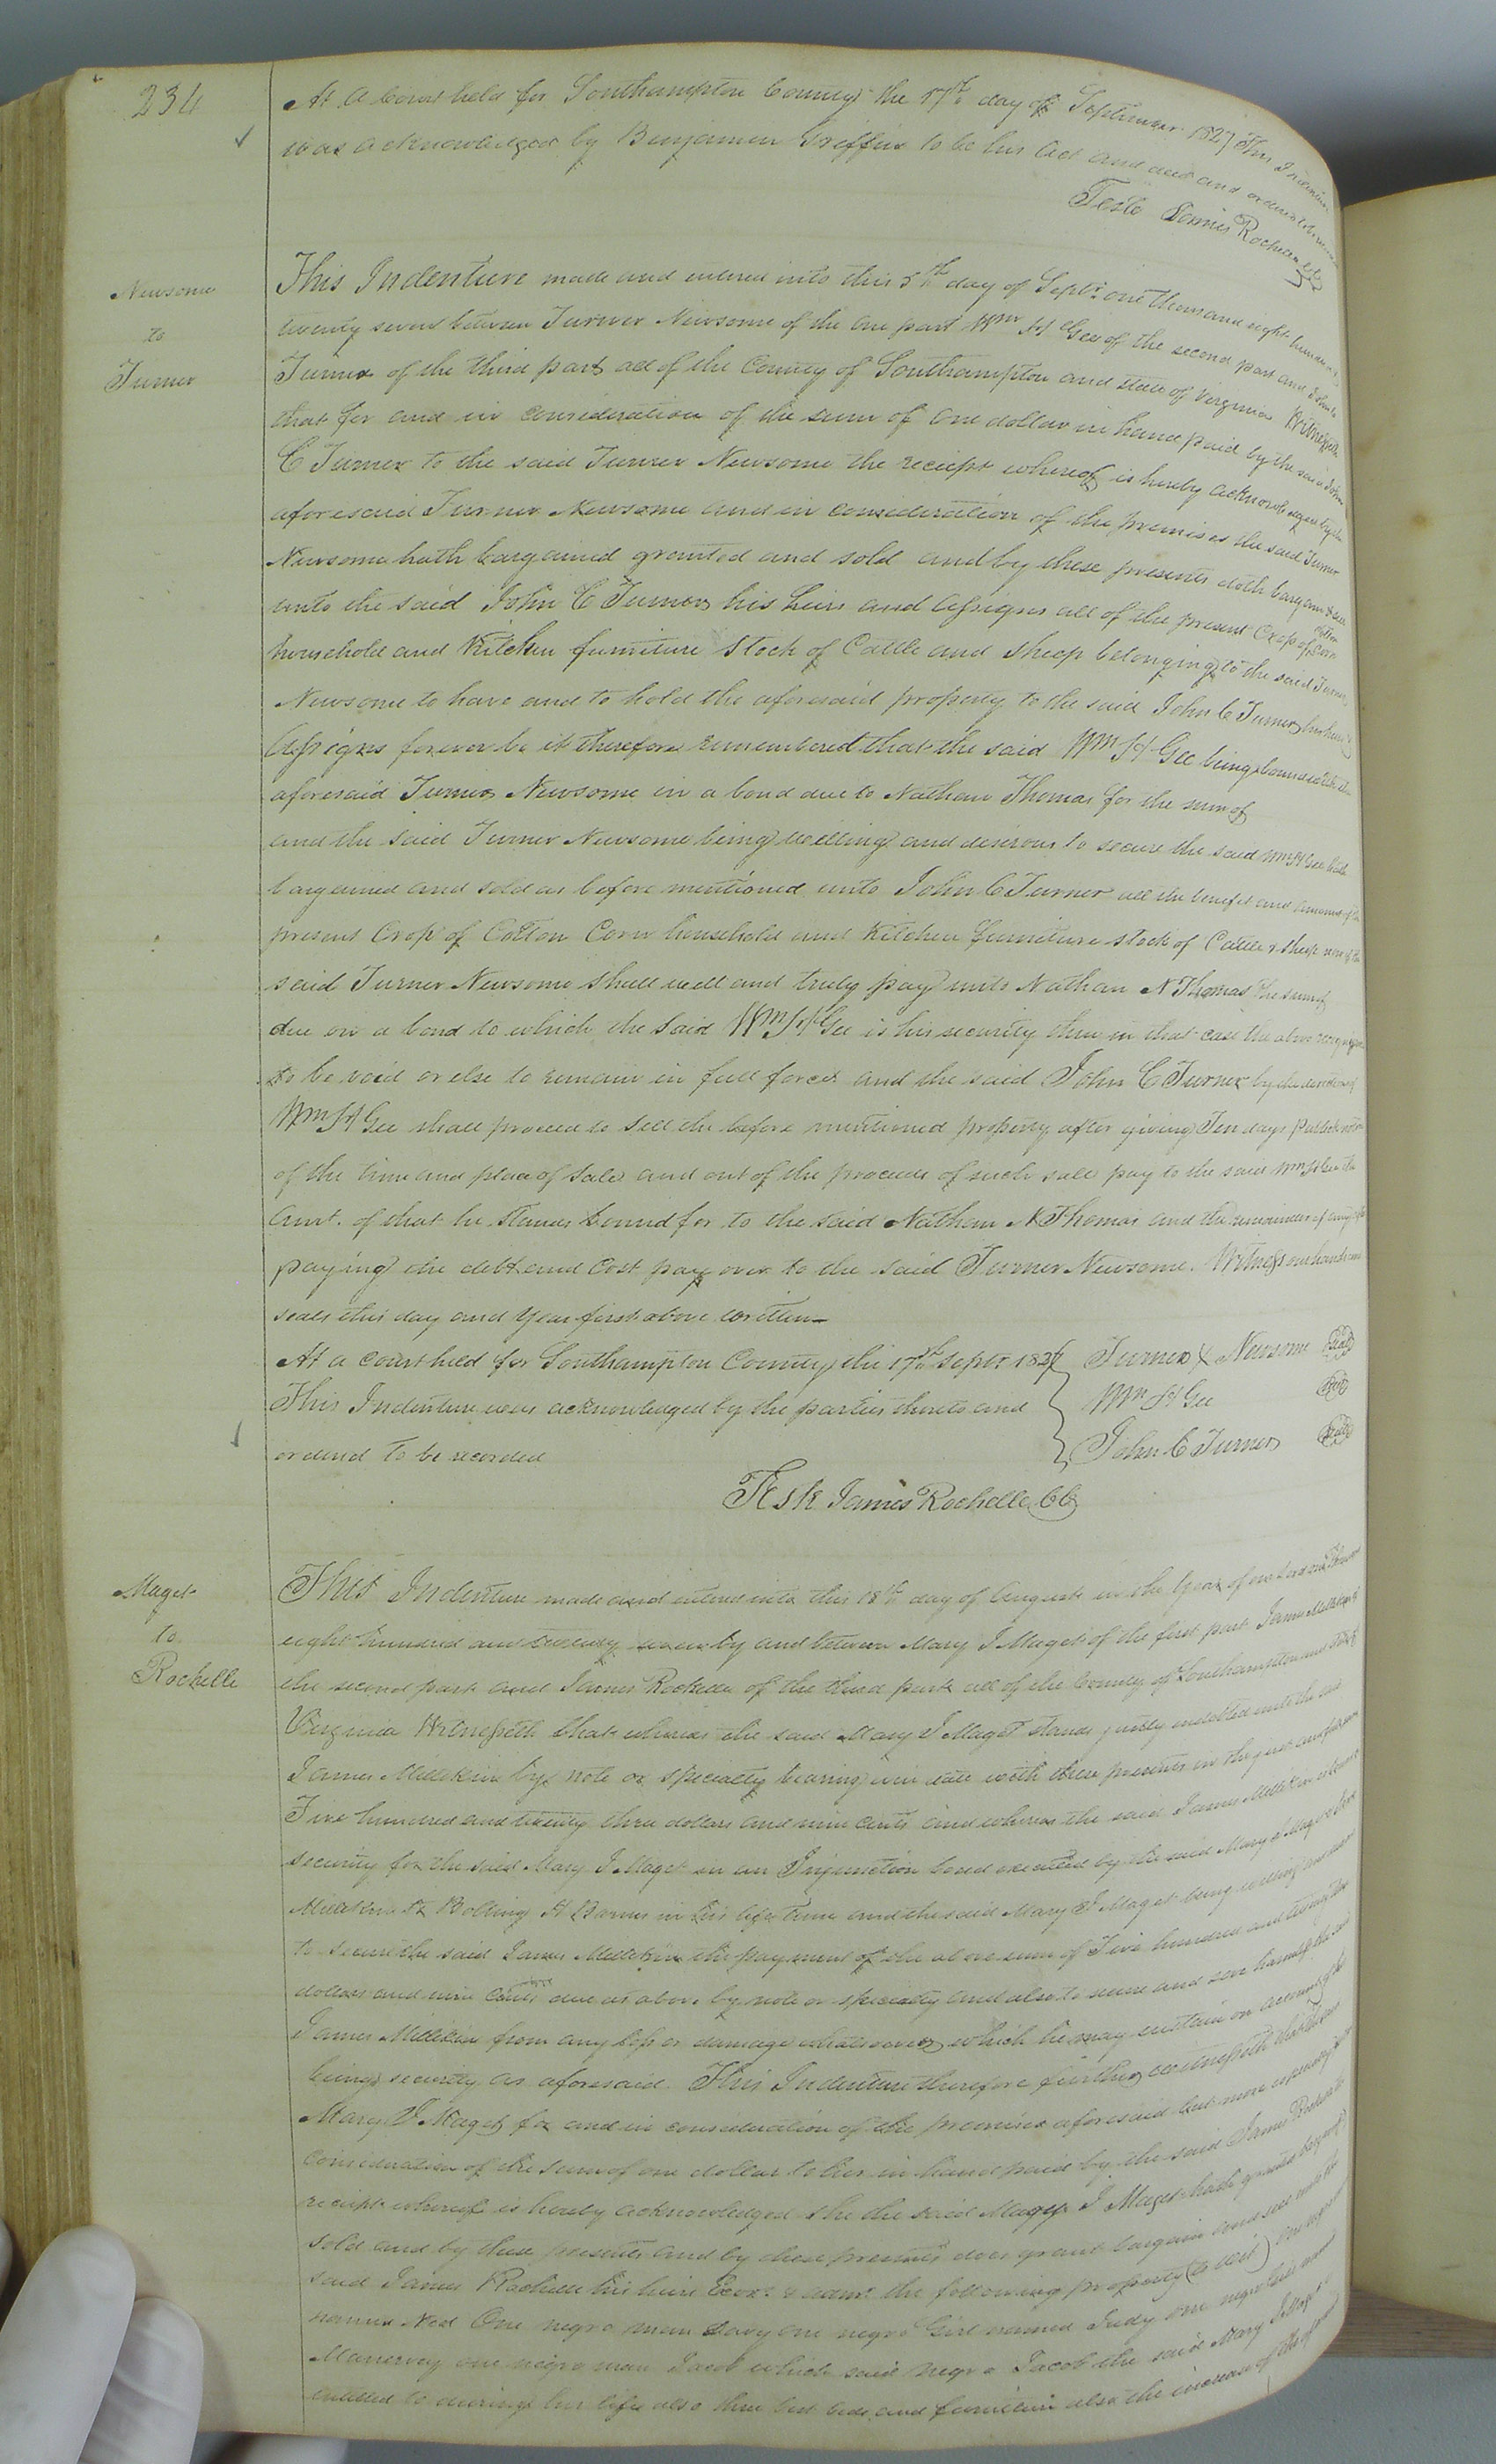 234
At a Court held for Southampton County the 17th day of September 1827 This Indenture
was acknowledged by Benjamin Griffin to be his act and deed and ordered to be
Teste James Rochelle Cl
Newsome
to
Turner
This Indenture made and entered into this 5th day of Septr. one thousand eight hundred
twenty seven between Turner Newsome of the one part Wm H Gee of the second part and John C
Turner of the third part all of the County of Southampton and state of Virginia Witnesseth
that for and in consideration of the sum of one dollar in hand paid by the said John
C Turner to the said Turner Newsome the reciept whereof is hereby acknowledged by the
aforesaid Turner Newsome and in consideration of the premises the said Turner
Newsome hath bargained granted and sold and by these presents doth bargain & sell
unto the said John C Turner his heirs and assigns all of the present Crop of Cotton Corn
household and Kitchen furniture Stock of Cattle and sheep belonging to the said Turner
Newsome to have and to hold the aforesaid property to the said John C Turner his heirs
Assigns forever be it therefore remembered that the said Wm H Gee being bound with the
aforesaid Turner Newsome in a bond due to Nathan Thomas for the sum of
and the said Turner Newsome being willing and desirous to secure the said Wm H Gee hath
bargained and sold as before mentioned unto John C Turner all the benefit and amount of the
present Crop of Cotton Corn household and Kitchen furniture stock of Cattle & sheep now if the
said Turner Newsome shall well and truly pay unto Nathan N Thomas the sum of
due on a bond to which the said Wm H Gee is his security then in that case the above
to be void or else to remain in full force and the said John C Turner by the direction of
Wm H Gee shall proceed to sell the before mentioned property after giving Ten days Publick notice
of the time and place of Sale and out of the proceeds of such sale pay to the said Wm H Gee the
Amt. of that he stands bound for to the said Nathan N Thomas and the remainder if any after
paying the debt and Cost pay over to the said Turner Newsome. Witness our hands and
seals this day and year first above written
At a court held for Southampton County the 17th Septr 1827 Turner X Newsome Seal
This Indenture was acknowledged by the parties thereto and Wm H Gee Seal
ordered to be recorded John C Turner Seal
Teste James Rochelle Cl
Maget
to
Rochelle
This Indenture made and entered into this 18th day of August in the year of our Lord one Thousand
eight hundred and twenty seven by and between Mary J Maget of the first part James Millikin of
the second part and James Rochelle of the third part all of the County of Southampton and State of
Virginia Witnesseth that whereas the said Mary J Maget stands justly indebted unto the said
James Millikin by note or specialty bearing even date with these presents in the just and full sum
Five hundred and twenty three dollars and nine cents and whereas the said James Millikin
security for the said Mary J Maget in an Injunction bond executed by the said Mary J Maget
Millikin to Bolling H Barnes in his life time and the said Mary J Maget being willing and
to secure the said James Millikin the payment of the above sum of Five hundred and twenty three
dollars and nine Cents due as above by note or specialty and also to secure and save harmless the said
James Millikin from any loss or damage whatsoever which he may sustain on account of his
being security as aforesaid. This Indenture therefore further witnesseth that the said
Mary J Maget for and in consideration of the premises aforesaid but more especially for
Consideration of the sum of one dollar to her in hand paid by the said James Rochelle the
reciept whereof is hereby acknowledged she the said Mary J Maget hath granted bargained
sold and by these presents and by these presents does grant bargain and sell unto the
said James Rochelle his heirs Exors. & admr. the following property (to wit) one negro
named Ned One negro man Davy one negro Girl named Judy one negro Girl named
Manervey one negro man Jacob which said negro Jacob the said Mary J Maget is
entitled to during her life also three beds and furniture also the increase of the